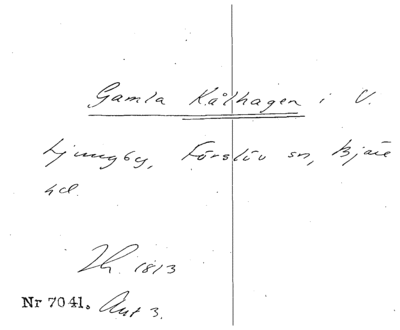 Gamla Kålhagen i V.
Ljungby, Förslöv sn, Bjäre
hd.
Lh. 1813
Nr 7041. Aut 3.